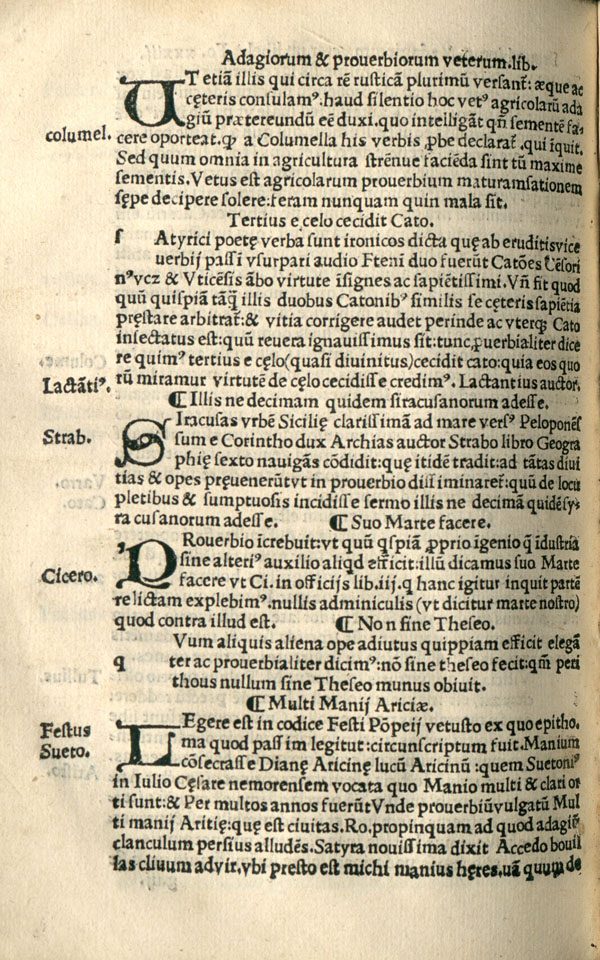 Adagiorum & prouerbiorum veterum.lib.
UT etiā illis qui circa rē rusticā plurimū versant᷑: æque ac
cęteris consulamꝰ. haud silentio hoc vetꝰ agricolarū ada
giū prætereundū eē duxi. quo intelligāt qñ sementē fa-
columel. cere oporteat. ꝙ a Columella his verbis ꝓbe declarat᷑. qui ĩquit.
Sed quum omnia in agricultura strēnue faciēda sint tū maxime
sementis. Vetus est agricolarum prouerbium maturam sationem
sępe decipere solere: seram nunquam quin mala sit.
Tertius e celo cecidit Cato.
s Atyrici poetę verba sunt ironicos dicta quę ab eruditis vice
uerbij passĩ vsurpari audio Fteni duo fuerūt Catões Cēsori
nꝰ vcz & Vticēsis ābo virtute ĩsignes ac sapiētissimi. Vñ fit quod
quū quispiā tāq̃ illis duobus Catonibꝰ similis se cęteris sapiētia
pręstare arbitrat᷑: & vitia corrigere audet perinde ac vterqꝫ Cato
insectatus est: quū reuera ignauissimus sit: tunc ꝓuerbialiter dice
re quimꝰ tertius e cęlo (quasi diuinitus) cecidit cato: quia eos quo
Lactātiꝰ. rū miramur virtutē de cęlo cecidisse credimꝰ. Lactantius auctor.
¶ Illis ne decimam quidem siracusanorum adesse.
SIracusas vrbē Sicilię clarissimā ad mare versꝰ Peloponēs
Strab. sum e Corintho dux Archias auctor Strabo libro Geogra
phię sexto nauigās cõdidit: que ĩtidē tradit: ad tātas diui
tias & opes pręuenerūt vt in prouerbio dissiminaret᷑: quū de locu
pletibus & sumptuosis incidisse sermo illis ne decimā quidē sy-
ra cusanorum adesse. ¶ Suo Marte facere.
PRouerbio ĩcrebuit: vt quū qspiā ꝓprio ĩgenio q̃ ĩdustria
sine alteriꝰ auxilio aliqd efficit: illū dicamus suo Marte
Cicero. facere vt Ci. in officijs lib. iij. q hanc igitur inquit partē
relictam explebimꝰ. nullis adminiculis (vt dicitur marte nostro)
quod contra illud est. ¶ No n sine Theseo.
Vum aliquis aliena ope adiutus quippiam efficit elegā
q ter ac prouerbialiter dicimꝰ: nõ sine theseo fecit: qm̃ peri
thous nullum sine Theseo munus obiuit.
¶ Multi Manij Ariciæ.
Festus LEgere est in codice Festi Põpeij vetusto ex quo epitho.
Sueto. ma quod passim legitut: circunscriptum fuit. Manium
cõsecrasse Dianę Aricinę lucū Aricinū: quem Suetoniꝰ
in Iulio Cęsare nemorensem vocata quo Manio multi & clari or
ti sunt: & Per multos annos fuerūt Vnde prouerbiū vulgatū Mul
ti manij Aritię: quę est ciuitas. Ro. propinquam ad quod adagiū
clanculum persius alludēs. Satyra nouissima dixit Accedo bouil
las cliuum advir. vbi presto est michi manius hęres. uā quum de